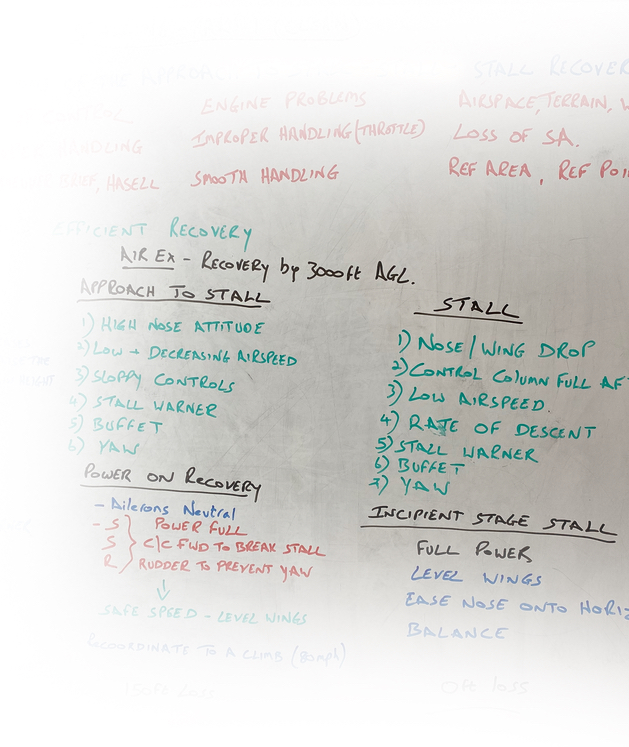 APPROACH
STALL RECOVER
ENGINE PROBLEMS
AIRSPACE, TERRAIN, W
HANDLING
IMPROPER HANDLING (THROTTLE)
LOSS OF SA.
BRIEF, HASELL
SMOOTH HANDLING
REF AREA, REF POI
EFFICIENT RECOVERY
AIR EX - RECOVERY by 3000ft AGL.
APPROACH TO STALL
1) HIGH NOSE ATTITUDE
2) LOW + DECREASING AIRSPEED
3) SLOPPY CONTROLS
4) STALL WARNER
5) BUFFET
6) YAW
POWER ON RECOVERY
- Ailerons Neutral
- S } POWER FULL
S } C/C FWD TO BREAK STALL
R } RUDDER TO PREVENT YAW
↓
SAFE SPEED - LEVEL WINGS
RECOORDINATE TO A CLIMB (80mph)
STALL
1) NOSE/WING DROP
2) CONTROL COLUMN FULL AFT
3) LOW AIRSPEED.
4) RATE OF DESCENT
5) STALL WARNER
6) BUFFET
7) YAW
INCIPIENT STAGE STALL
FULL POWER
LEVEL WINGS
EASE NOSE ONTO HORIZ
BALANCE
0ft loss